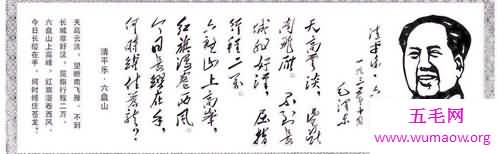 清平乐·六
一九三五年十月
毛泽东
天高云淡 望断
南飞雁 不到长
城非好汉 屈指
行程二万
六盘山上高峰
红旗漫卷西风
今日长缨在手
何时缚住苍龙?
清平乐·六盘山
天高云淡，望断南飞雁。不到
长城非好汉，屈指行程二万。
六盘山上高峰，红旗漫卷西风。
今日长缨在手，何时缚住苍龙？
五毛网
www.wumaow.org